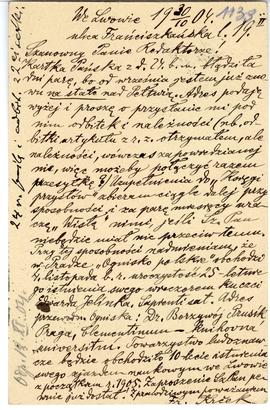 We Lwowie 19 30/10 04. 1139
ulica Franciszkańska l. 19 II
Szanowny Panie Redaktorze.
Kartka Pańska z d. 24. b. m. błądziła
dni parę, bo od września jestem już znowu
na stałe nad Pełtwią. Adres podaję
wyżej i proszę o przysłanie mi pod
nim odbitek i należności (nb. od-
bitki artykułu z r. z. otrzymałem, ale
należności, wówczas zapowiedzianej
nie, więc możeby połączyć razem
przesyłkę?) Uzupełnienia do „Księgi
przysłów" zbieram ciągle dalej przy
sposobności i za parę miesięcy wrócę
„Wisłę" nimi, jeśli Sz. Pan
nie będzie miał nic przeciw temu.
Przy sposobności nadmieniam, że
w Pradze „Ognisko polskie" obchodzi
listopada b. r. uroczystość 25-letniego
istnienia swego wieczorem ku czci
Edwarda Jelinka. Sapienti sat. Adres
przewodn. Ogniska: Dr. Borzywój Prusík
Praga, Clementinum — Knihovna
universitní. Towarzystwo ludoznawcze
będzie obchodziło 10-lecie istnienia
swego zjazdem naukowym we Lwowie
z początkiem r. 1905. Zaproszenie Sz. Pan
pewno już dostał. Z prawdziwym poważaniem